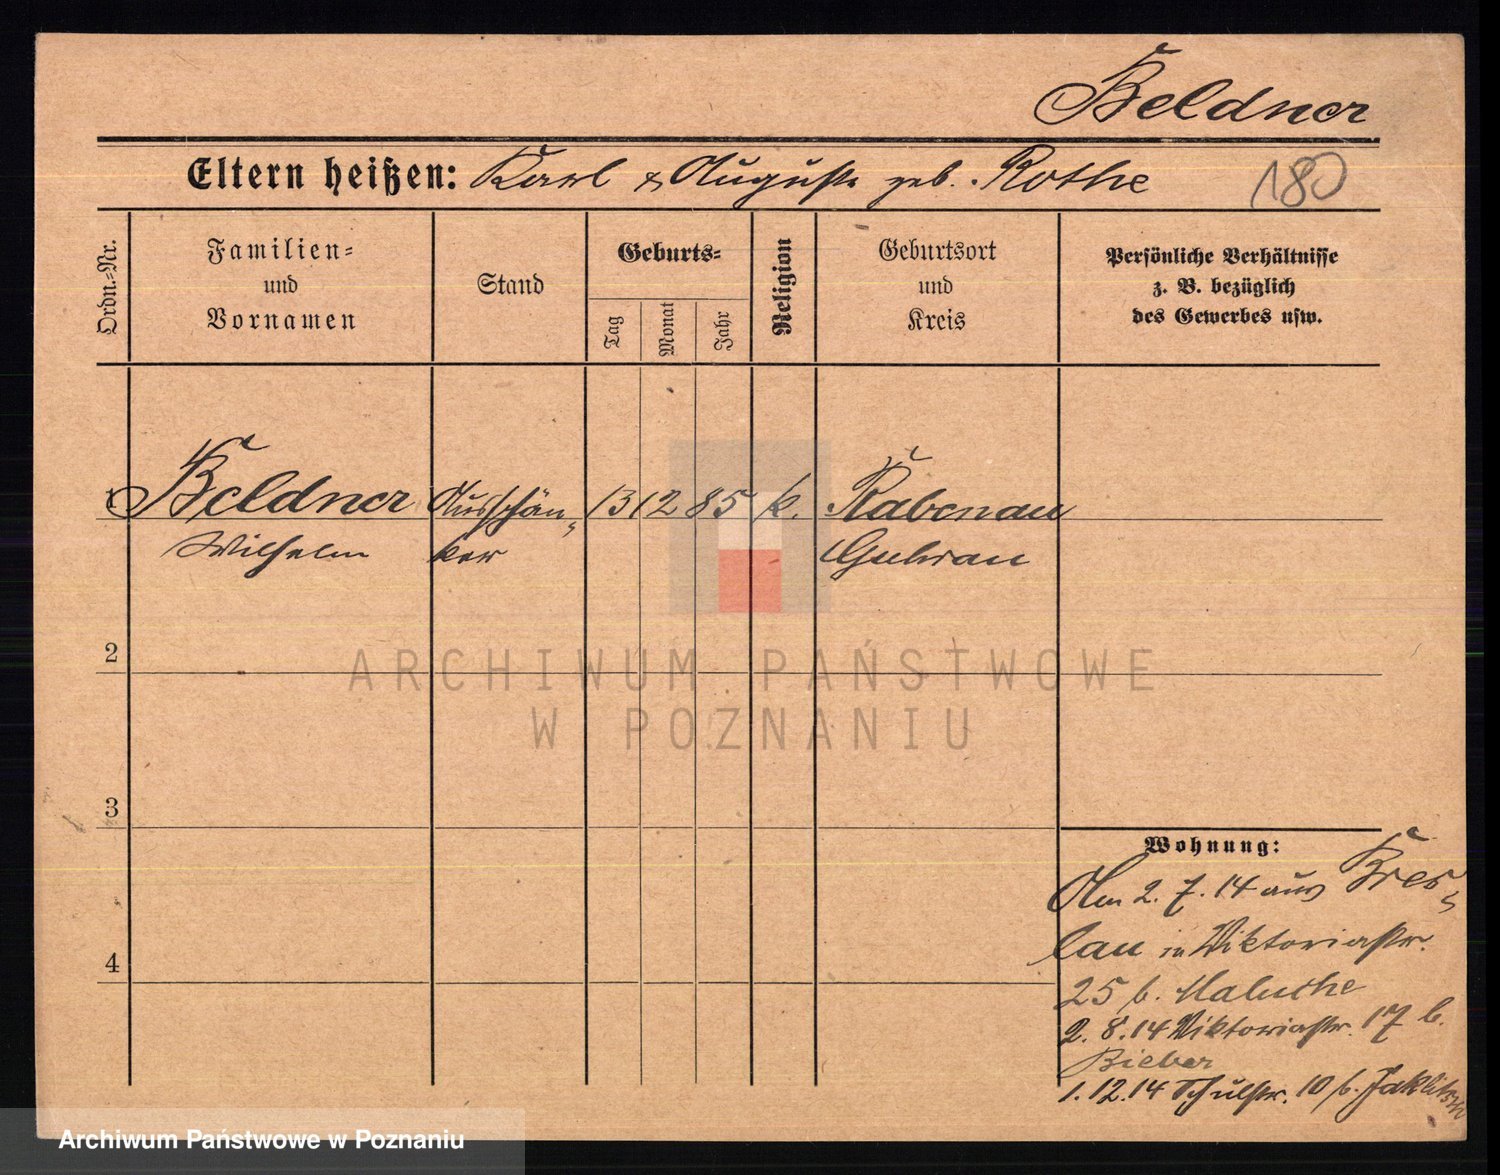 Beldner
Eltern heißen: Karl & Auguste geb. Rothe
180
Ordn.-Nr.
Familien-
und
Vornamen
Stand
Geburts-
Tag
Monat
Jahr
Religion
Geburtsort
und
Kreis
Persönliche Verhältnisse
z. B. bezüglich
des Gewerbes usw.
1 Beldner Ausschän- 13 12 85 k. Rabenau
Wilhelm ker Guhrau
2
3
4
Wohnung:
Am 2.7.14 aus Bres-
lau in Viktoriastr.
25 b. Maluche
2.8.14 Viktoriastr. 17 b.
Bieber
1.12.14 Schulstr. 10 b.
ARCHIWUM PAŃSTWOWE
W POZNANIU
Archiwum Państwowe w Poznaniu